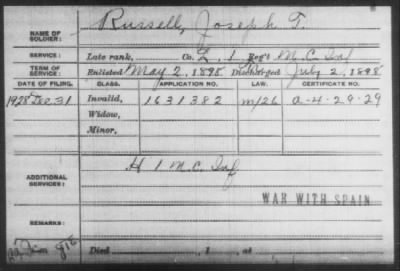 NAME OF SOLDIER: Russell, Joseph T.
SERVICE: Late rank, Co. L, 1 Reg't N.C. Inf
TERM OF SERVICE: Enlisted May 2, 1898 Discharged July 2, 1898
DATE OF FILING. CLASS. APPLICATION NO. LAW. CERTIFICATE NO.
1928 Dec 31 Invalid, 1631382 m/26 a-4-29-29
Widow,
Minor,
ADDITIONAL SERVICES: H 1 N.C. Inf
WAR WITH SPAIN
REMARKS:
Died , 1 , at